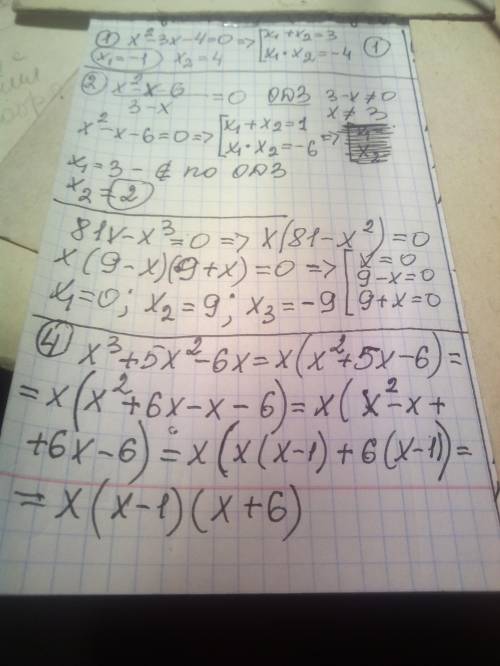 ① x²-3x-4=0 => [x₁+x₂=3
x₁=-1 x₂=4 [x₁·x₂=-4 ①
② x²-x-6/3-x =0 ОДЗ 3-x≠0
x≠3
x²-x-6=0 => [x₁+x₂=1
[x₁·x₂=-6 =>
x₁=3 - ∉ по ОДЗ
x₂=2
81x-x³=0 => x(81-x²)=0
x(9-x)(9+x)=0 => [x=0
[9-x=0
x₁=0; x₂=9; x₃=-9 [9+x=0
④ x³+5x²-6x=x(x²+5x-6)=
=x(x²+6x-x-6)=x(x²-x+
+6x-6)=x(x(x-1)+6(x-1))=
=x(x-1)(x+6)